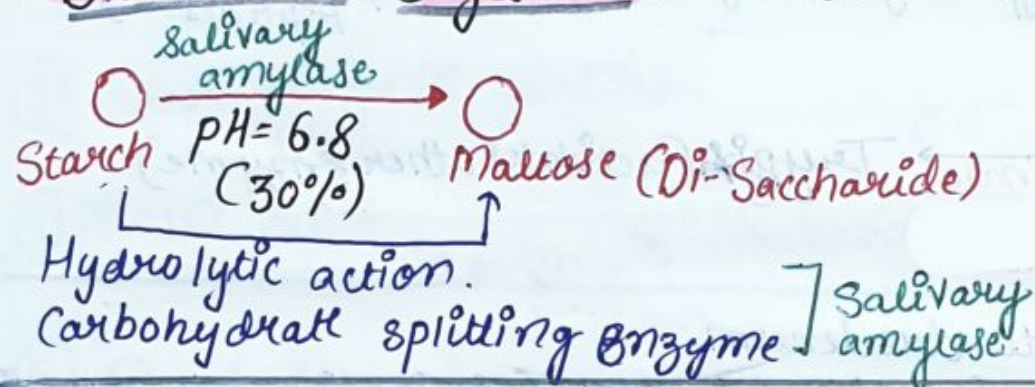 Salivary
amylase
Starch
pH= 6.8
(30%)
Maltose (Di-Saccharide)
Hydrolytic action.
Carbohydrate splitting enzyme
Salivary
amylase